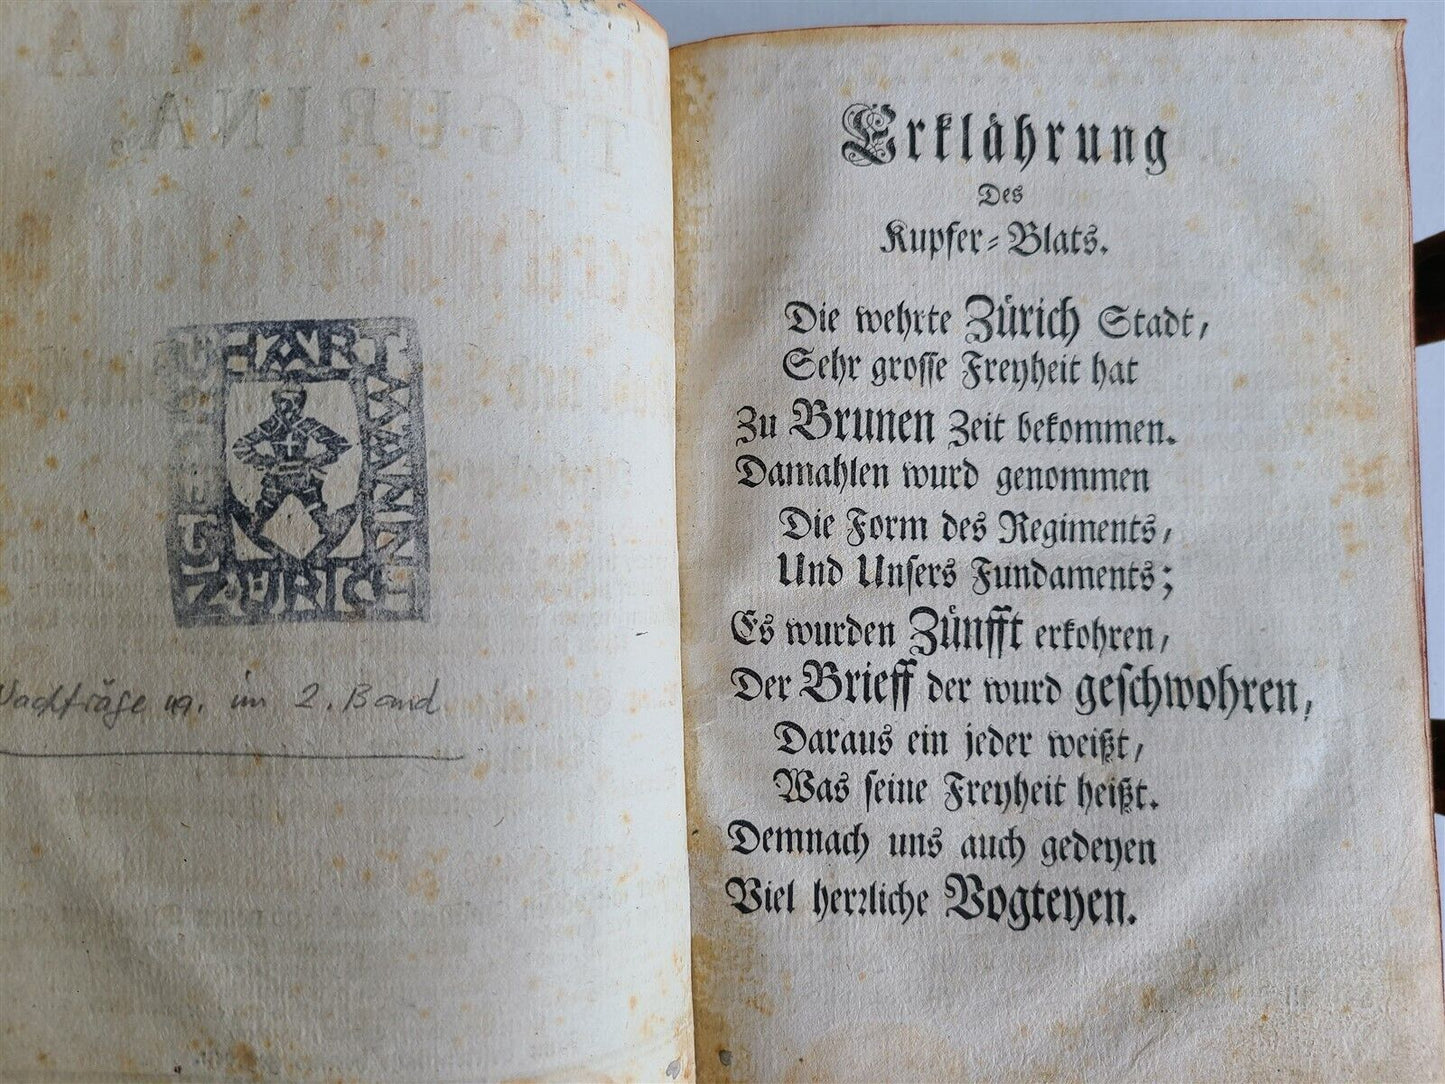 TIGURINA,
HARTMANN
ZÜRICH
Nachträge 19. im 2. Band
Erklährung
Des
Kupfer-Blats.
Die wehrte Zürich Stadt,
Sehr grosse Freyheit hat
Zu Brunen Zeit bekommen.
Damahlen wurd genommen
Die Form des Regiments,
Und Unsers Fundaments;
Es wurden Zünfft erkohren,
Der Brieff der wurd geschwohren,
Daraus ein jeder weißt,
Was seine Freyheit heißt.
Demnach uns auch gedeyen
Viel herrliche Vogteyen.